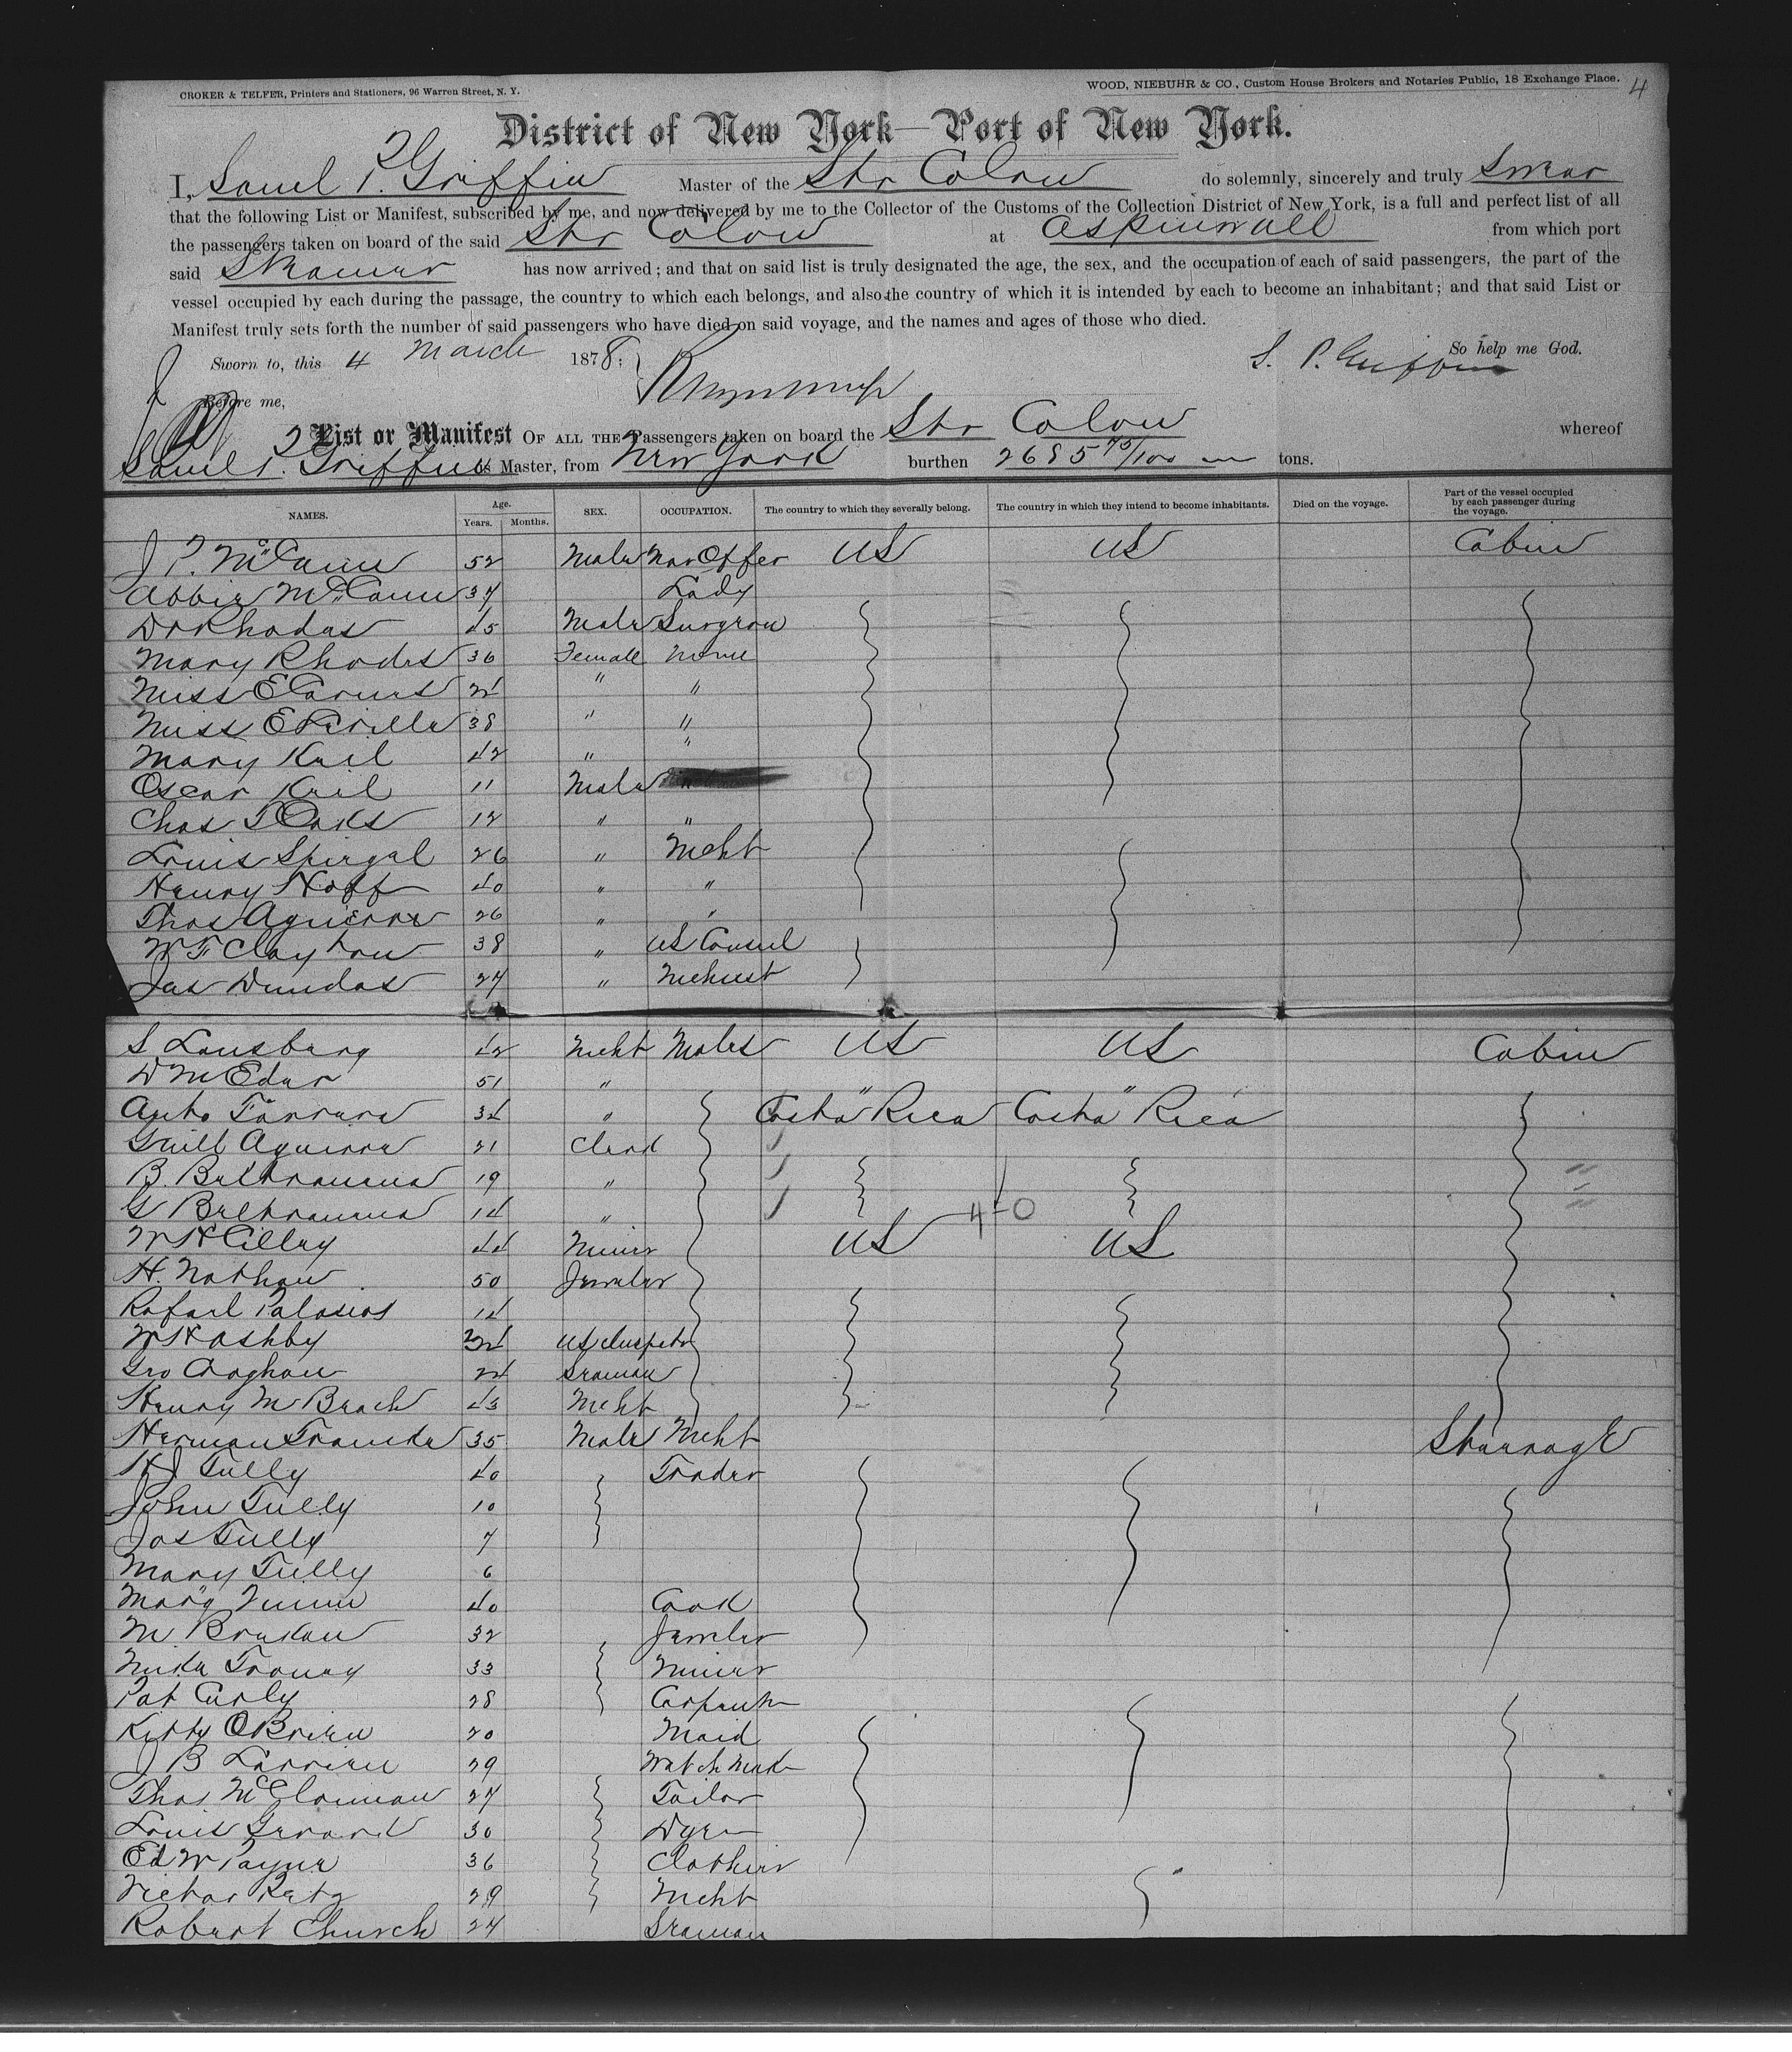 CROKER & TELFER, Printers and Stationers, 96 Warren Street, N. Y.
WOOD, NIEBUHR & CO., Custom House Brokers and Notaries Public, 18 Exchange Place.
4
District of New York—Port of New York.
I, Saml P. Griffin Master of the Str Colon do solemnly, sincerely and truly Swear
that the following List or Manifest, subscribed by me, and now delivered by me to the Collector of the Customs of the Collection District of New York, is a full and perfect list of all
the passengers taken on board of the said Str Colon at Aspinwall from which port
said Steamer has now arrived; and that on said list is truly designated the age, the sex, and the occupation of each of said passengers, the part of the
vessel occupied by each during the passage, the country to which each belongs, and also the country of which it is intended by each to become an inhabitant; and that said List or
Manifest truly sets forth the number of said passengers who have died on said voyage, and the names and ages of those who died.
So help me God.
Sworn to, this 4 March 1878; S. P. Griffin
Before me,
List or Manifest OF ALL THE Passengers taken on board the Str Colon whereof
Saml P. Griffin is Master, from New York burthen 2685 75/100 tons.
NAMES. Age. Years. Months. SEX. OCCUPATION. The country to which they severally belong. The country in which they intend to become inhabitants. Died on the voyage. Part of the vessel occupied by each passenger during the voyage.
J P. McCann 52 Male Nav Offer US US Cabin
Abbie McCann 37 Lady
Dr Rhodes 45 Male Surgeon
Mary Rhodes 36 Female None
Miss E 24 " "
Miss E 38 " "
Mary Keil 42 " "
Oscar Keil 11 Male
Chas T Oaks 12 " "
Louis Spirgal 26 " Mcht
Henry Hoff 40 " "
Thos Aguirre 26 " "
W F Clayton 38 " US Consul
Jas Dundas 27 " Mchnst
S Lansberg 42 Mcht Males US US Cabin
D M Eder 51 " " "
Anto Farrara 34 " Costa Rica Costa Rica
Guill Aguirre 21 Clerk
B. 19 "
G 14 "
W H Cilley 44 Miner US US
H. Nathan 50 Jeweler
Rafael Palasios 14
W H Ashby 24 US Inspetr
Geo 24 Seaman
Henry M Beach 43 Mcht
Herman Francke 35 Male Mcht Steerage
H J Tully 40 Trader
John Tully 10
Jos Tully 7
Mary Tully 6
Marg 40 Cook
M. 32 Jeweler
33 Miner
Pat Curly 28 Carpentr
Kitty O Brien 20 Maid
J B Larrieu 29 Watch Mak
Thos 27 Tailor
Louis 30 Dyer
Ed W Payne 36 Clothier
Victor Retz 29 Mcht
Robert Church 24 Seaman